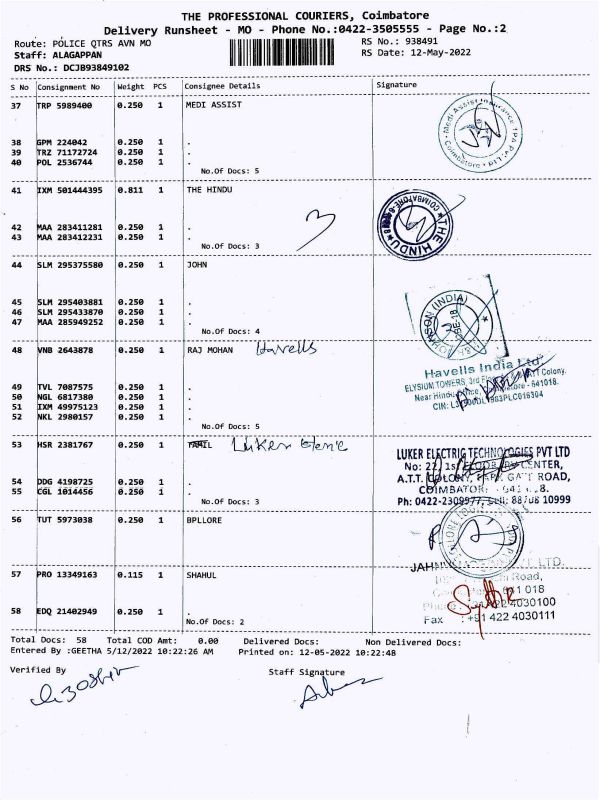 THE PROFESSIONAL COURIERS, Coimbatore
Delivery Runsheet - MO - Phone No.:0422-3505555 - Page No.:2
Route: POLICE QTRS AVN MO
RS No.: 938491
Staff: ALAGAPPAN
RS Date: 12-May-2022
DRS No.: DCJB93849102
S No Consignment No Weight PCS Consignee Details Signature
37 TRP 5989400 0.250 1 MEDI ASSIST
38 GPM 224042 0.250 1 .
39 TRZ 71172724 0.250 1 .
40 POL 2536744 0.250 1 .
No.Of Docs: 5
Medi Assist Insurance TPA Pvt. Ltd.
Coimbatore
41 IXM 501444395 0.811 1 THE HINDU
42 MAA 283411281 0.250 1 .
43 MAA 283412231 0.250 1 .
No.Of Docs: 3
3
THE HINDU
COIMBATORE
44 SLM 295375580 0.250 1 JOHN
45 SLM 295403881 0.250 1 .
46 SLM 295433870 0.250 1 .
47 MAA 285949252 0.250 1 .
No.Of Docs: 4
(INDIA)
48 VNB 2643878 0.250 1 RAJ MOHAN Havells
49 TVL 7087575 0.250 1 .
50 NGL 6817380 0.250 1 .
51 IXM 49975123 0.250 1 .
52 NKL 2980157 0.250 1 .
No.Of Docs: 5
Havells India Ltd.
ELYSIUM TOWERS, 3rd Colony,
Near Hindu - 641018.
CIN: PLC016304
53 HSR 2381767 0.250 1 TAMIL Luker
54 DDG 4198725 0.250 1 .
55 CGL 1014456 0.250 1 .
No.Of Docs: 3
LUKER ELECTRIC TECHNOLOGIES PVT LTD
No: 22, 1st FLOOR, CENTER,
A.T.T. COLONY, ROAD,
COIMBATORE
Ph: 0422-2309977, Cell: 10999
56 TUT 5973038 0.250 1 BPLLORE
57 PRO 13349163 0.115 1 SHAHUL
58 EDQ 21402949 0.250 1 .
No.Of Docs: 2
LTD.
Road,
641 018
Phone 422 4030100
Fax : +91 422 4030111
Total Docs: 58 Total COD Amt: 0.00 Delivered Docs: Non Delivered Docs:
Entered By :GEETHA 5/12/2022 10:22:26 AM Printed on: 12-05-2022 10:22:48
Verified By
Staff Signature